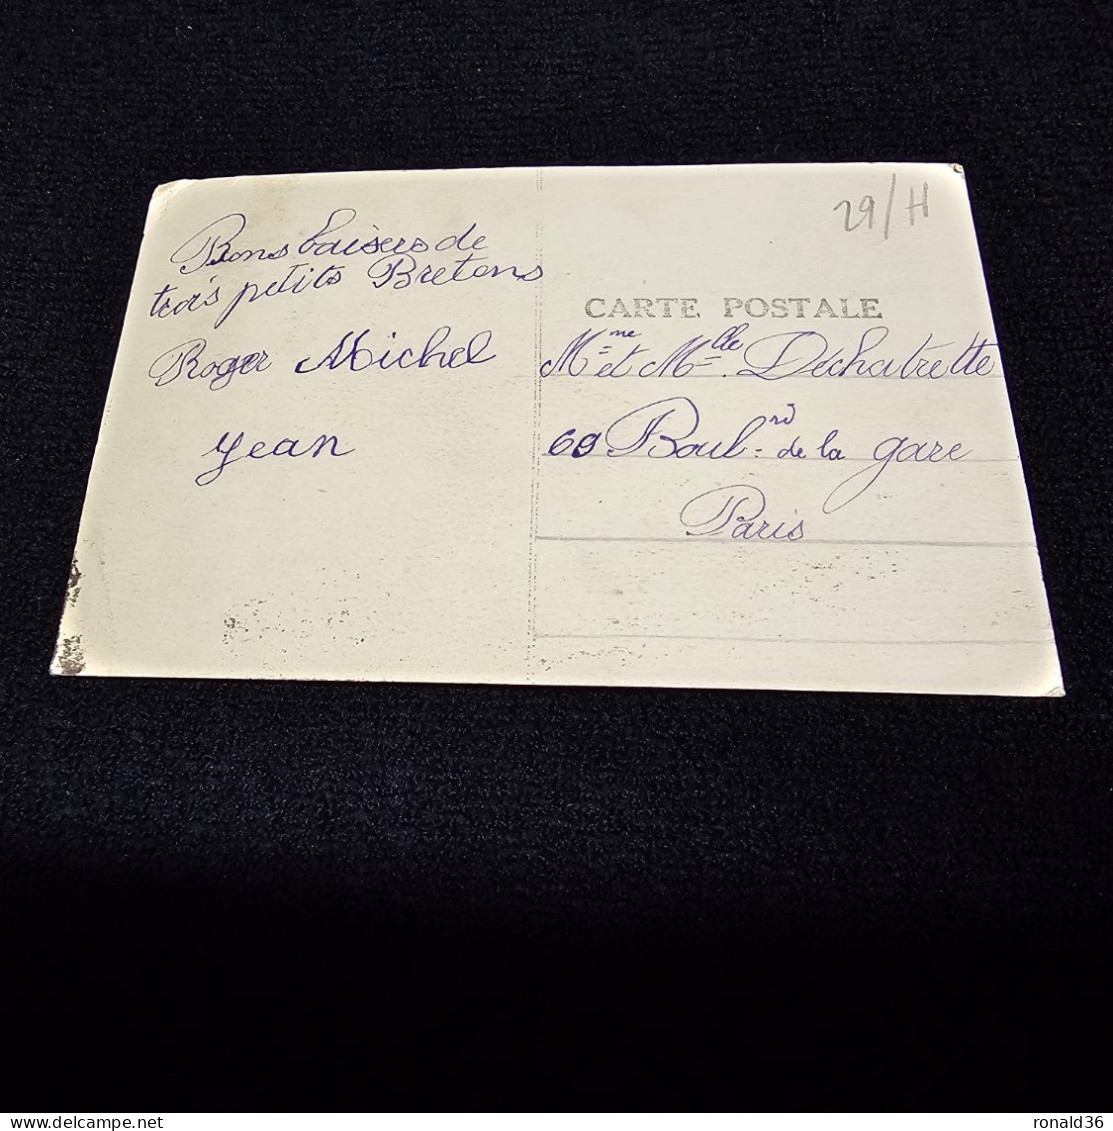 29/H
Bons baisers de
trois petits Bretons
Roger Michel
Jean
CARTE POSTALE
Mme et Mlle Déchatrette
60 Boul.rd de la gare
Paris
ronald36